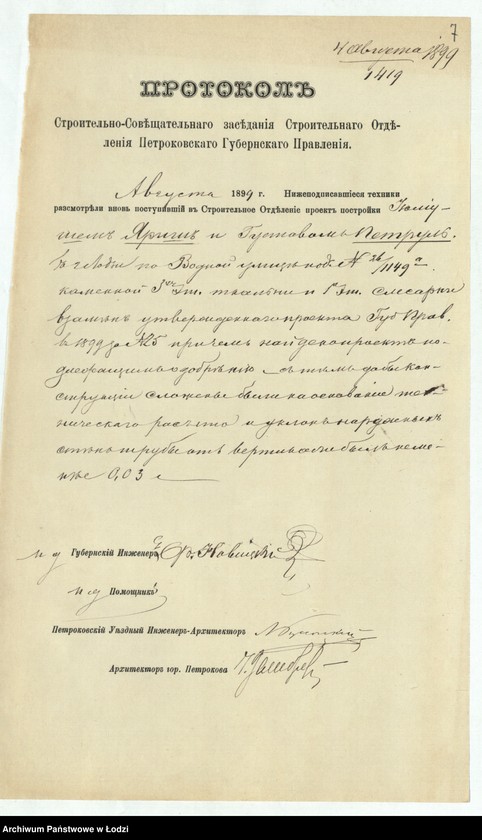 7
4 Августа 1899
1419
ПРОТОКОЛЪ
Строительно-Совѣщательнаго засѣданія Строительнаго Отдѣ-
ленія Петроковскаго Губернскаго Правленія.
Августа 1899 г. Нижеподписавшіеся техники
разсмотрѣли вновь поступившій въ Строительное Отдѣленіе проектъ постройки Юліу-
и Густавомъ
въ г. Лодзи по Водной улицѣ под. №
каменной 3 эт. ткальни и 1 эт. слесарни
взамѣнъ утвержденнаго проекта Губ. Прав.
въ 1899 за № причемъ найденъ проектъ по-
длежащимъ одобренію съ тѣмъ дабы кон-
струкціи сложные были на основаніи тех-
ническаго расчета и уклонъ наружныхъ
стѣнъ трубы отъ вертикали былъ не ме-
нѣе 0,03
и д Губернскій Инженеръ Новицкій
и д Помощникъ
Петроковскій Уѣздный Инженеръ-Архитекторъ
Архитекторъ гор. Петрокова
Archiwum Państwowe w Łodzi